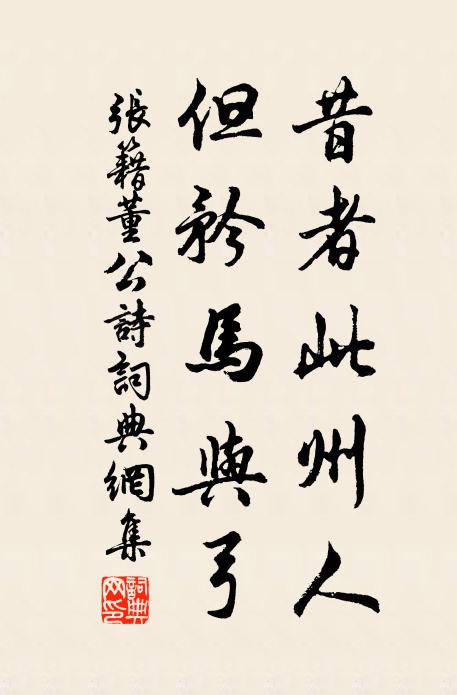 昔者此州人
但矜馬與弓
張籍董公詩詞典網集
詞典网印